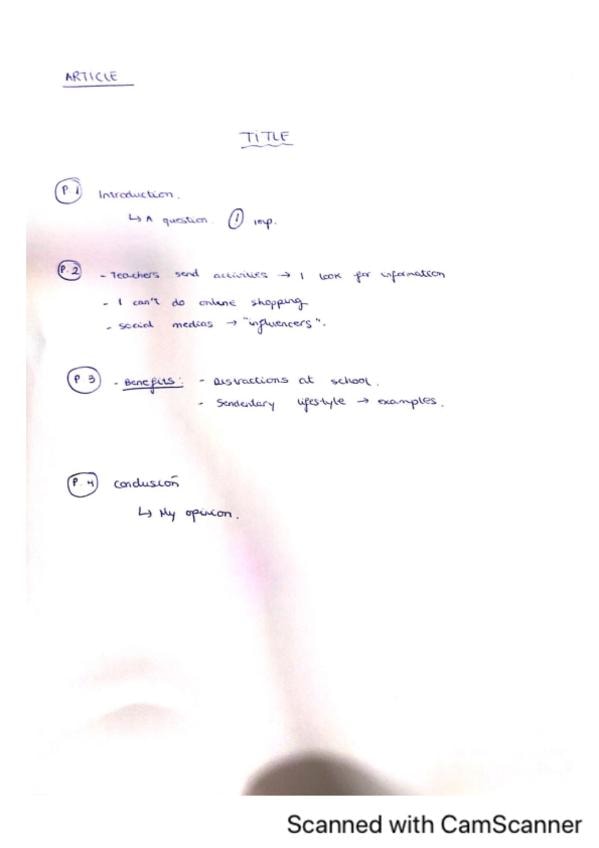 ARTICLE
TITLE
P.1 Introduction.
↳ A question. ① imp.
P.2 - Teachers send activities → I look for information
- I can't do online shopping
- social medias → "influencers".
P 3 - Benefits: - Distractions at school.
- Sendentary lifestyle → examples.
P. 4 conclusión
↳ My opinion.
Scanned with CamScanner